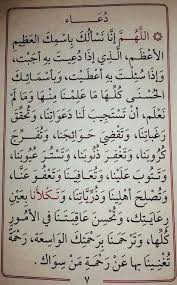 دُعَاء
اللَّهُمَّ إِنَّا نَسْأَلُكَ بِاسْمِكَ الْعَظِيمِ
الْأَعْظَمِ، الَّذِي إِذَا دُعِيتَ بِهِ أَجَبْتَ،
وَإِذَا سُئِلْتَ بِهِ أَعْطَيْتَ، وَبِأَسْمَائِكَ
الْحُسْنَى كُلِّهَا مَا عَلِمْنَا مِنْهَا وَمَا لَمْ
نَعْلَمْ، أَنْ تَسْتَجِيبَ لَنَا دَعَوَاتِنَا، وَتُحَقِّقَ
رَغَبَاتِنَا، وَتَقْضِيَ حَوَائِجَنَا، وَتُفَرِّجَ
كُرُوبَنَا، وَتَغْفِرَ ذُنُوبَنَا، وَتَسْتُرَ عُيُوبَنَا،
وَتَتُوبَ عَلَيْنَا، وَتُعَافِيَنَا وَتَعْفُوَ عَنَّا،
وَتُصْلِحَ أَهْلِينَا وَذُرِّيَّاتِنَا، وَتَكْلَأَنَا بِعَيْنِ
رِعَايَتِكَ، وَتُحْسِنَ عَاقِبَتَنَا فِي الْأُمُورِ
كُلِّهَا، وَتَرْحَمَنَا بِرَحْمَتِكَ الْوَاسِعَةِ، رَحْمَةً
تُغْنِينَا بِهَا عَنْ رَحْمَةِ مَنْ سِوَاكَ.
٧